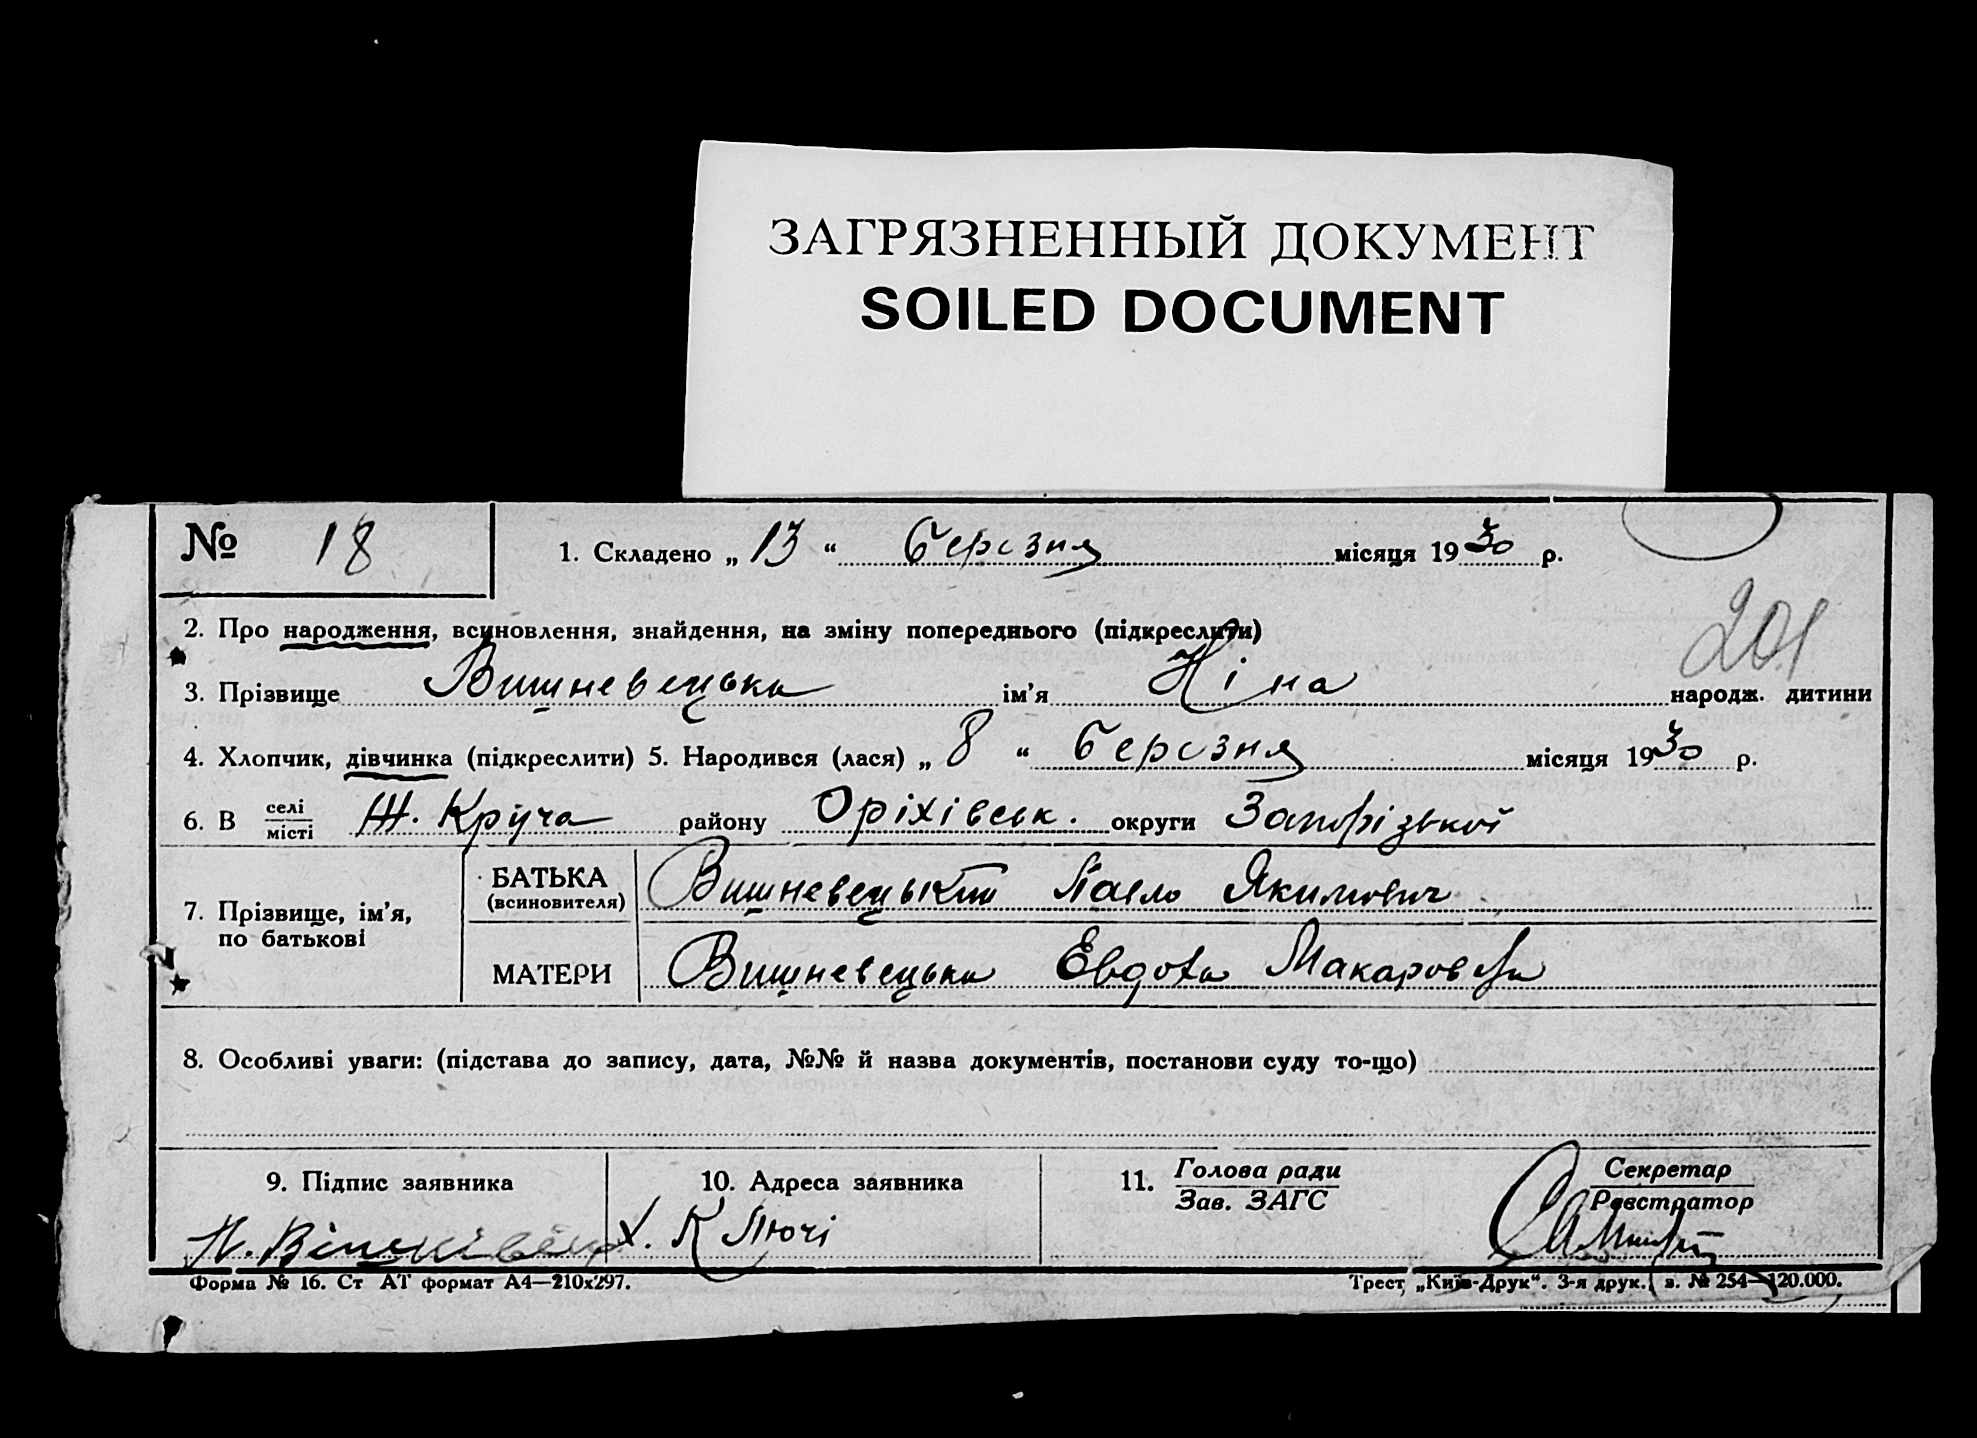 ЗАГРЯЗНЕННЫЙ ДОКУМЕНТ
SOILED DOCUMENT
№ 18 1. Складено „ 13 “ Березня місяця 1930 р.
201
2. Про народження, всиновлення, знайдення, на зміну попереднього (підкреслити)
3. Прізвище Вишневецька ім’я Ніна народж. дитини
4. Хлопчик, дівчинка (підкреслити) 5. Народився (лася) „ 8 “ Березня місяця 1930 р.
6. В селі / місті Ж. Круча району Оріхівськ. округи Запорізької
7. Прізвище, ім’я, по батькові
БАТЬКА (всиновителя) Вишневецький Павло Якимович
МАТЕРИ Вишневецька Евдота Макаровна
8. Особливі уваги: (підстава до запису, дата, №№ й назва документів, постанови суду то-що)
9. Підпис заявника 10. Адреса заявника 11. Голова ради / Зав. ЗАГС Секретар / Реєстратор
Х. Ключі
Форма № 16. Ст АТ формат А4—210х297. Трест „Київ-Друк“. 3-я друк. з. № 254—120.000.